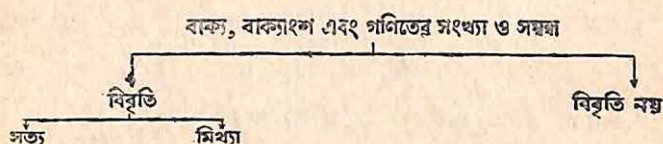 বাক্য, বাক্যাংশ এবং গণিতের সংখ্যা ও সম্বন্ধ
বিবৃতি
বিবৃতি নয়
সত্য
মিথ্যা